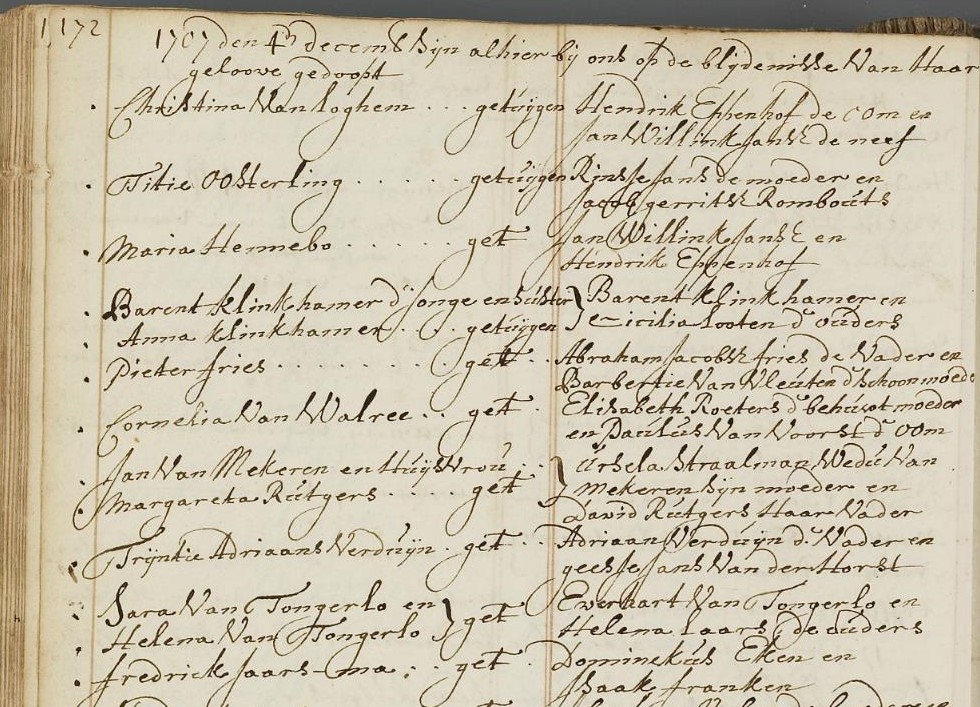 172
1707 den 4den decemb Sijn alhier bij ons op de blijdenisse Van Haar
geloove gedoopt
Christina Van Loghem . . . getuijgen Hendrik Eppenhof de oom en
Jan Willink Jansz de neef
Titie Oosterling . . . . . . getuijgen Rinsse Jans de moeder en
Jacob gerritsz Rombouts
Maria Hennebo . . . . . . get Jan Willink Jansz en
Hendrik Eppenhof
Barent klinkhamer d'Jonge en suster } Barent klinkhamer en
Anna klinkhamer . . . getuijgen } Cicilia Looten d ouders
Pieter fries . . . . . . . . get . . Abraham Jacobsz fries de Vader en
Barbertie Van Vleuten d schoonmoede
Cornelia Van Walree . . get . Elisabeth Roeters d' behuwt moeder
en Paulus Van Voorst d' oom
Jan Van Mekeren en Huijsvrou . . } Ursela Straalman Wedu Van
Margareta Rutgers . . . . get } Mekeren Sijn moeder en
David Rutgers Haar Vader
Trijntie Adriaans Verduijn . get . . Adriaan Verduijn d' Vader en
geesse Jans Van der Horst
Sara Van Tongerlo en } get Everhart Van Tongerlo en
Helena Van Tongerlo } Helena Laars, de ouders
fredrick Jaars-ma . . . get . Dominekus Eken en
Isaak franken